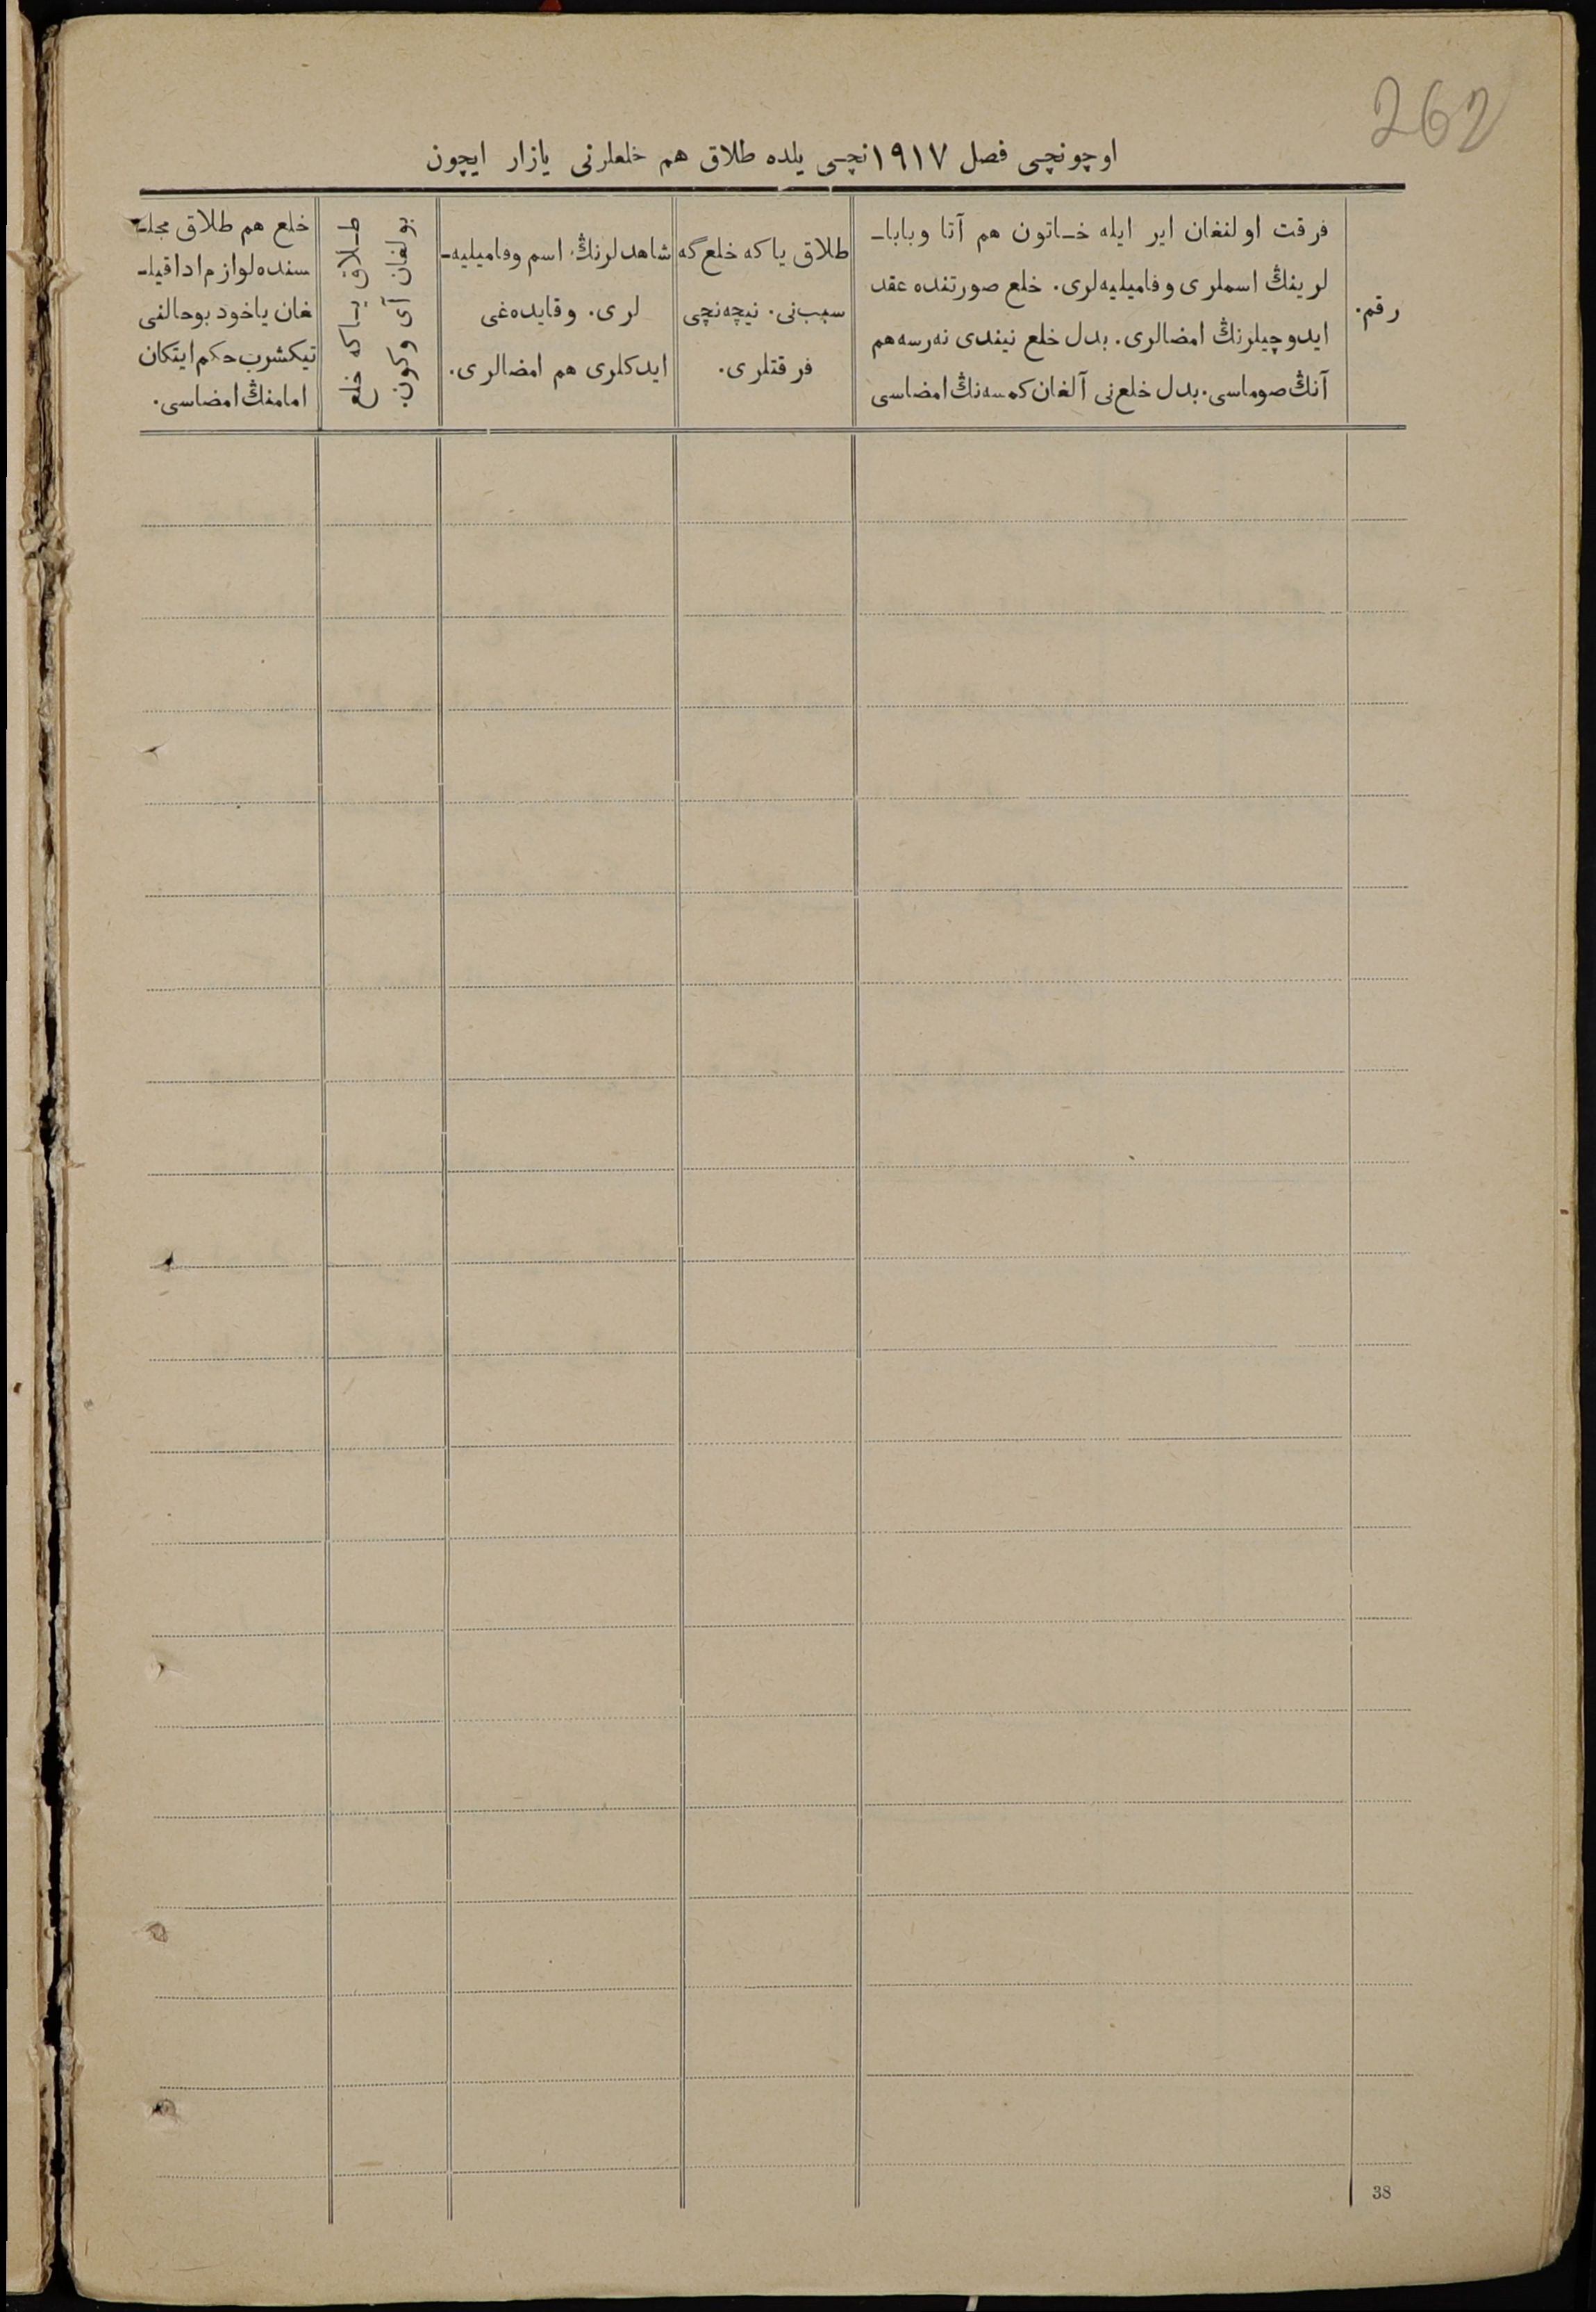 262
اوچونچی فصل ١٩١٧نچی یلده طلاق هم خلعلرنی یازار ایچون
رقم.
فرقت اولنغان ایر ایله خـاتون هم آتا وبابا-
لرینڭ اسملری وفامیلیه‌لری. خلع صورتنده عقد
ایدوچیلرنڭ امضالری. بدل خلع نیندی نه‌رسه هم
آنڭ صوماسی. بدل خلع‌نی آلغان کمسه‌نڭ امضاسی
طلاق یاکه خلع‌گه
سبب‌نی. نیچه‌نچی
فرقتلری.
شاهدلرنڭ اسم وفامیلیه-
لری. وقایده‌غی
ایدکلری هم امضالری.
طـلاق یـاکه خلع
بولغان آی وکون.
خلع هم طلاق مجلـ
سنده لوازم ادا قیلـ
غان یاخود بوحالنی
تیکشرب حکم ایتکان
امامنڭ امضاسی.
38